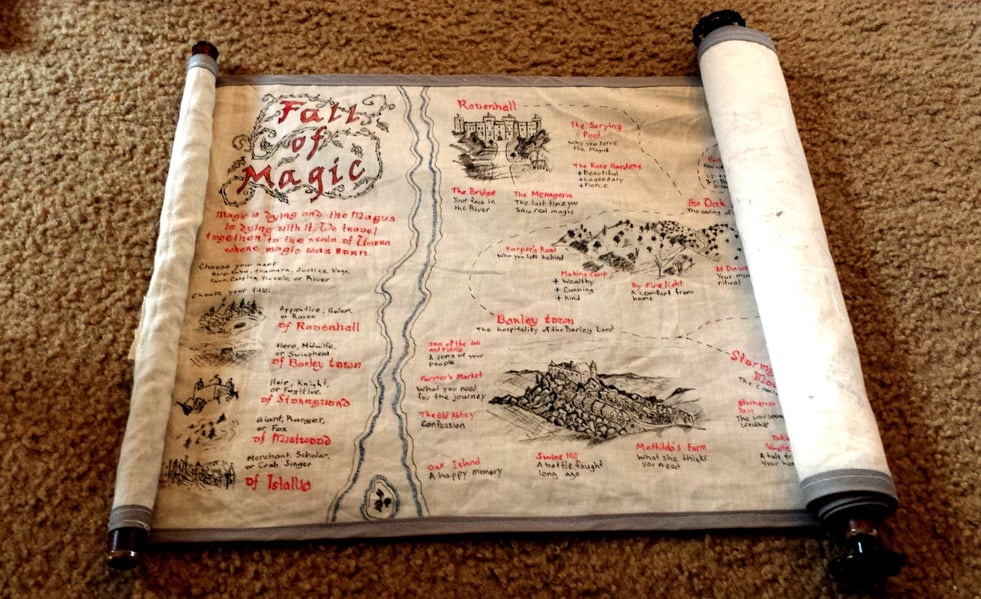 Fall
of
Magic
Magic is dying and the Magus
is dying with it. We travel
together to the realm of Umbra
where magic was BORN.
Choose your name:
Justice, Vago,
or River
Choose your title:
Apprentice, Golem,
or Raven
of Ravenhall
Hero, Midwife,
or Swineherd
of Barley town
Heir, Knight,
or Fugitive
of Stormguard
Giant, Ranger,
or Fox
of Mistwood
Merchant, Scholar,
or Crab Singer
of Istallia
Ravenhall
The Scrying
Pool
Why you serve
the Magus
The Rose Gardens
+Beautiful
+Legendary
+Fierce
The Bridge
Your face in
the River
The Menagerie
The last time you
saw real magic
The Oak
The ending of
Harper's Road
Who you left behind
Making Camp
+ Wealthy
+ Cunning
+ Kind
By Fire light
A comfort from
home
At Dawn
Your mo
ritual
Barley town
The hospitality of the Barley Land
and Fiddle
A song of your
people
Farmer's Market
What you need
for the journey
The Old Abbey
Confession
Oak Island
A happy memory
Swine Hill
A battle fought
long ago
Mathilda's Farm
What she thinks
you need
Storm
The
A tale
Your ho